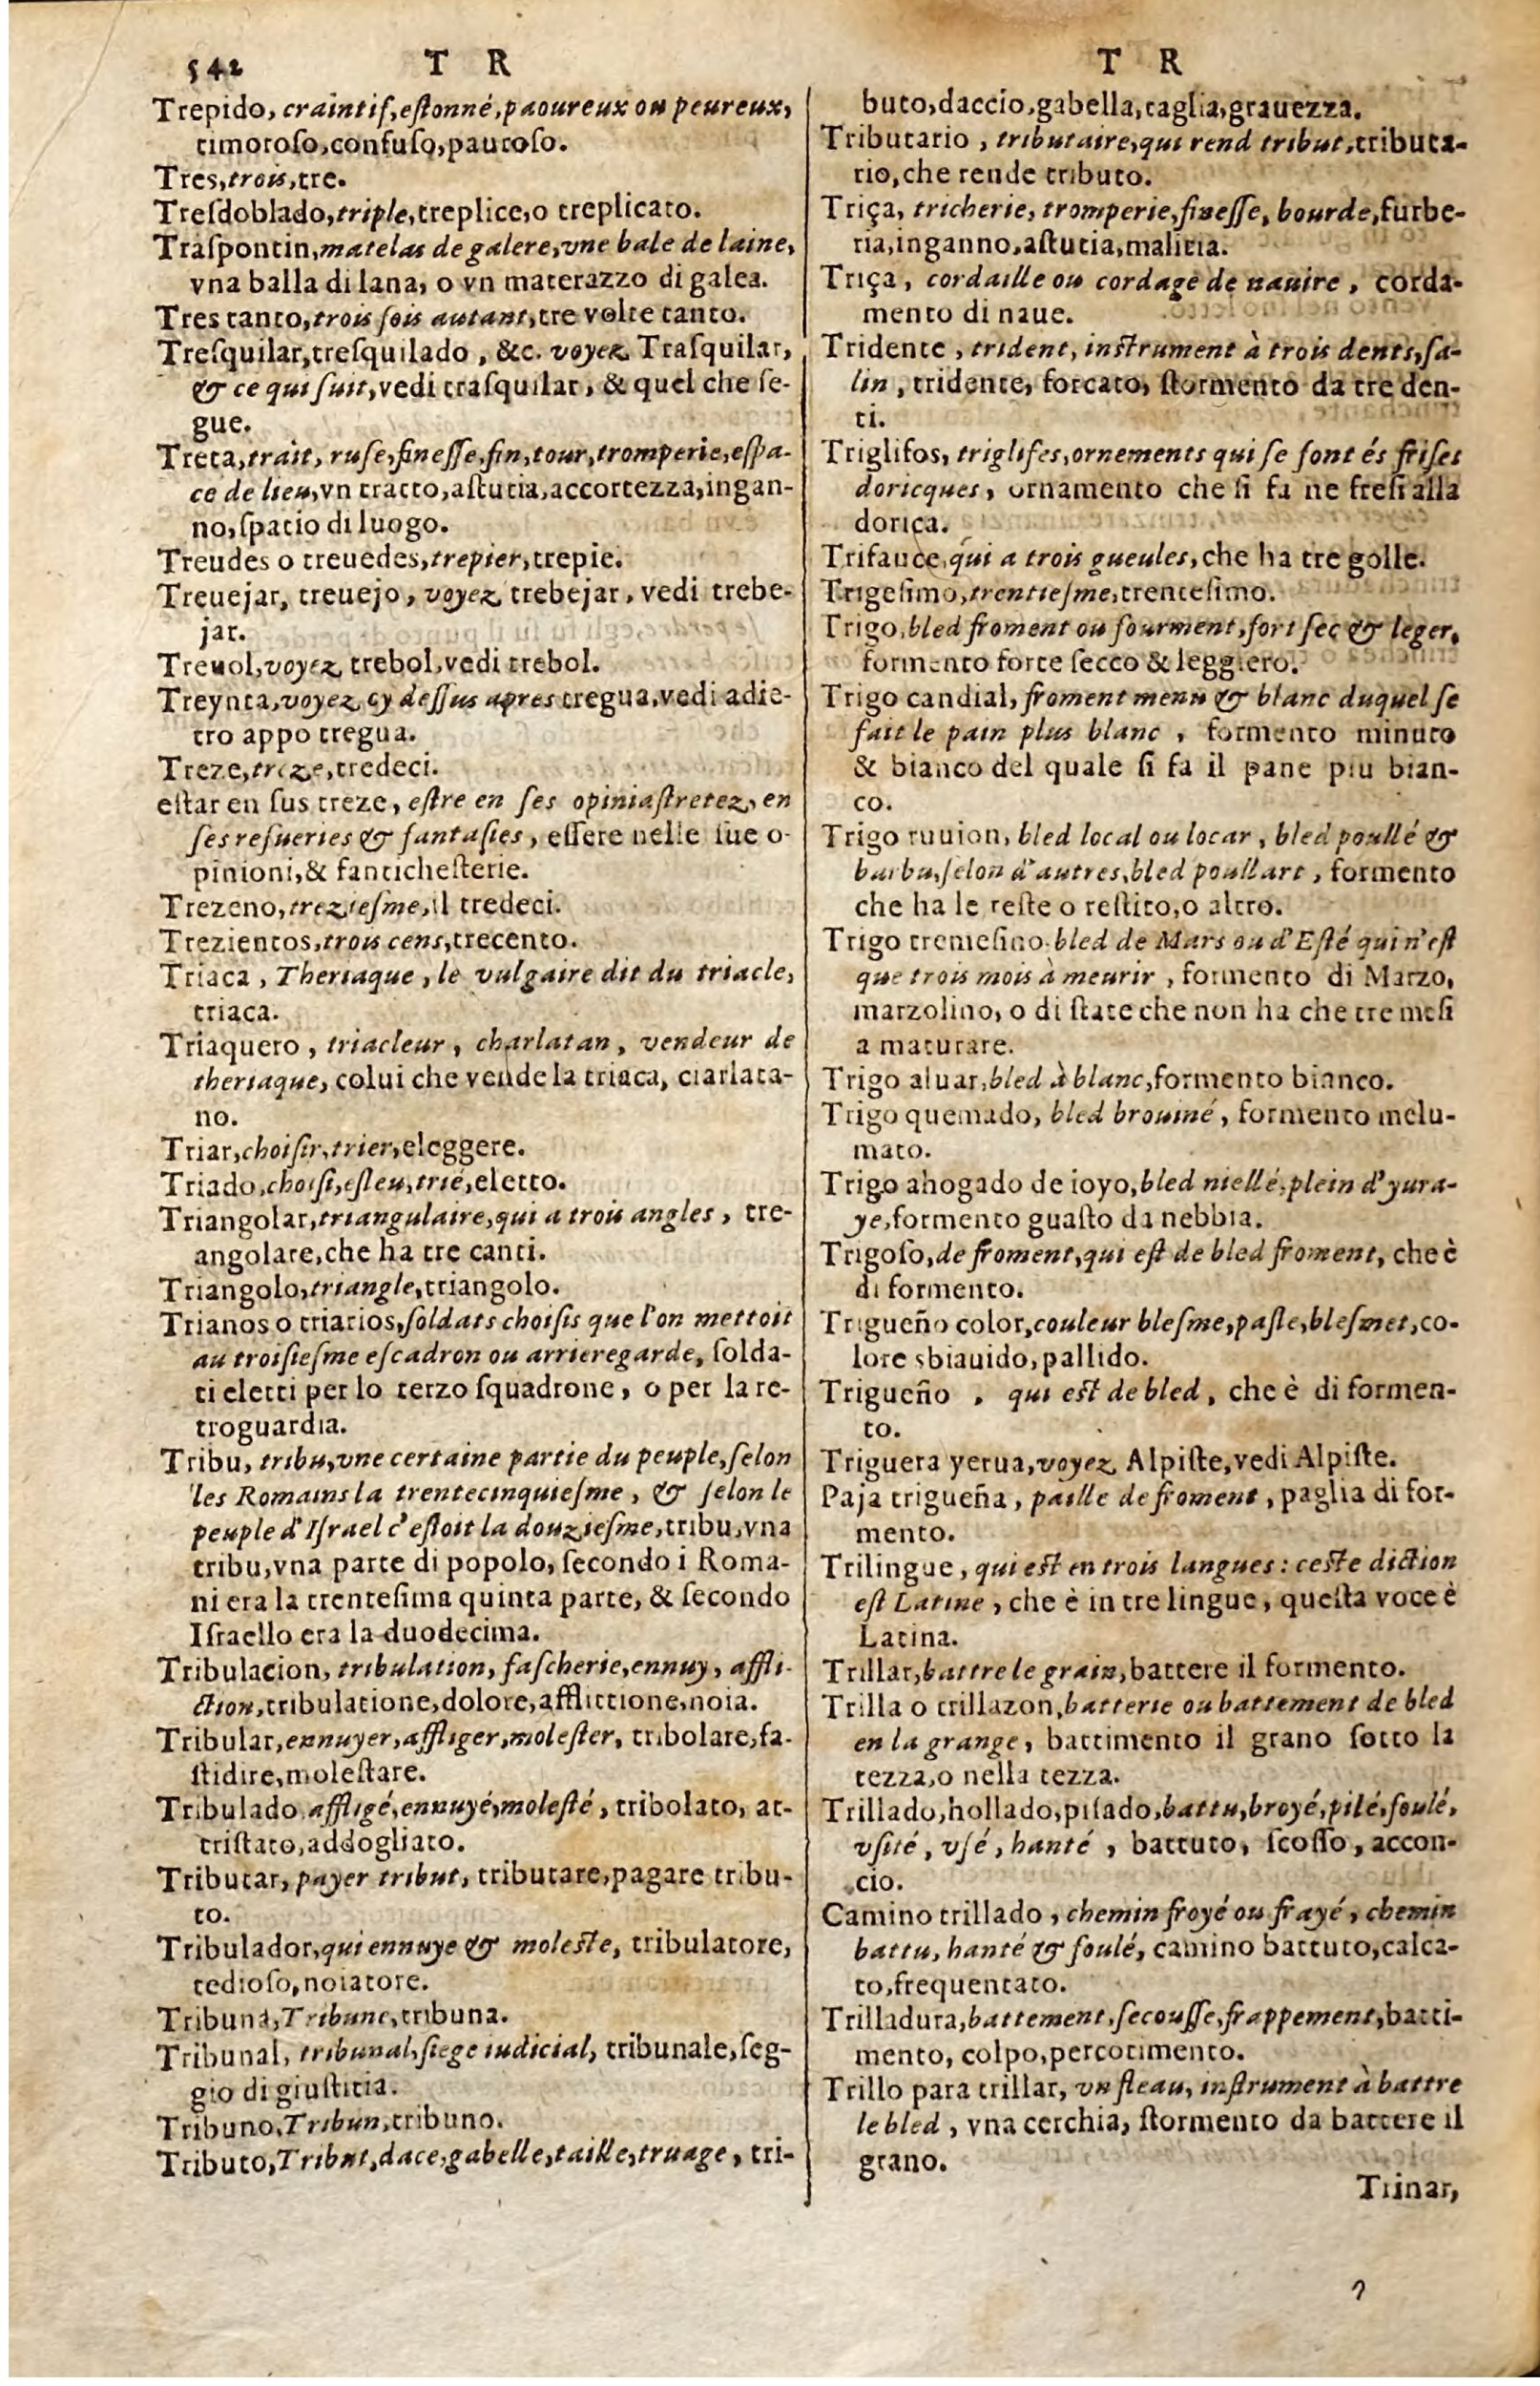 542 T R
Trepido, craintif, estonné, paoureux ou peureux,
timoroſo, confuſo, pauroſo.
Tres, trois, tre.
Treſdoblado, triple, treplice, o treplicato.
Traſpontin, matelas de galere, vne bale de laine,
vna balla di lana, o vn materazzo di galea.
Tres tanto, trois fois autant, tre volte tanto.
Treſquilar, treſquilado, &c. voyez Traſquilar,
& ce qui ſuit, vedi traſquilar, & quel che ſe-
gue.
Treta, trait, ruſe, fineſſe, fin, tour, tromperie, eſpa-
ce de lieu, vn tratto, aſtutia, accortezza, ingan-
no, ſpatio di luogo.
Treudes o treuedes, trepier, trepie.
Treuejar, treuejo, voyez trebejar, vedi trebe-
jar.
Treuol, voyez trebol, vedi trebol.
Treynta, voyez cy deſſus apres tregua, vedi adie-
tro appo tregua.
Treze, treze, tredeci.
eſtar en ſus treze, eſtre en ſes opiniaſtretez, en
ſes reſueries & fantaſies, eſſere nelle ſue o-
pinioni, & fanticheſterie.
Trezeno, trezieſme, il tredeci.
Trezientos, trois cens, trecento.
Triaca, Theriaque, le vulgaire dit du triacle,
triaca.
Triaquero, triacleur, charlatan, vendeur de
theriaque, colui che vende la triaca, ciarlata-
no.
Triar, choiſir, trier, eleggere.
Triado, choiſi, eſleu, trié, eletto.
Triangolar, triangulaire, qui a trois angles, tre-
angolare, che ha tre canti.
Triangolo, triangle, triangolo.
Trianos o triarios, ſoldats choiſis que l'on mettoit
au troiſieſme eſcadron ou arrieregarde, ſolda-
ti eletti per lo terzo ſquadrone, o per la re-
troguardia.
Tribu, tribu, vne certaine partie du peuple, ſelon
les Romains la trentecinquieſme, & ſelon le
peuple d'Iſrael c'eſtoit la douzieſme, tribu, vna
tribu, vna parte di popolo, ſecondo i Roma-
ni era la trenteſima quinta parte, & ſecondo
Iſraello era la duodecima.
Tribulacion, tribulation, faſcherie, ennuy, affli-
ction, tribulatione, dolore, afflittione, noia.
Tribular, ennuyer, affliger, moleſter, tribolare, fa-
ſtidire, moleſtare.
Tribulado, affligé, ennuyé, moleſté, tribolato, at-
triſtato, addogliato.
Tributar, payer tribut, tributare, pagare tribu-
to.
Tribulador, qui ennuye & moleſte, tribulatore,
tedioſo, noiatore.
Tribuna, Tribune, tribuna.
Tribunal, tribunal, ſiege iudicial, tribunale, ſeg-
gio di giuſtitia.
Tribuno, Tribun, tribuno.
Tributo, Tribut, dace, gabelle, taille, truage, tri-
T R
buto, daccio, gabella, taglia, grauezza.
Tributario, tributaire, qui rend tribut, tributa-
rio, che rende tributo.
Triça, tricherie, tromperie, fineſſe, bourde, furbe-
ria, inganno, aſtutia, malitia.
Triça, cordaille ou cordage de nauire, corda-
mento di naue.
Tridente, trident, inſtrument à trois dents, ſa-
lin, tridente, forcato, ſtormento da tre den-
ti.
Triglifos, triglifes, ornements qui ſe font és friſes
doricques, ornamento che ſi fa ne freſi alla
dorica.
Trifauce, qui a trois gueules, che ha tre golle.
Trigeſimo, trentieſme, trenteſimo.
Trigo, bled froment ou fourment, fort ſec & leger,
formento forte ſecco & leggiero.
Trigo candial, froment menu & blanc duquel ſe
fait le pain plus blanc, formento minuto
& bianco del quale ſi fa il pane piu bian-
co.
Trigo ruuion, bled local ou locar, bled poullé &
barbu, ſelon d'autres, bled poullart, formento
che ha le reſte o reſtito, o altro.
Trigo tremeſino, bled de Mars ou d'Eſté qui n'eſt
que trois mois à meurir, formento di Marzo,
marzolino, o di ſtate che non ha che tre meſi
a maturare.
Trigo aluar, bled à blanc, formento bianco.
Trigo quemado, bled brouiné, formento melu-
mato.
Trigo ahogado de ioyo, bled niellé, plein d'yura-
ye, formento guaſto da nebbia.
Trigoſo, de froment, qui eſt de bled froment, che è
di formento.
Trigueño color, couleur bleſme, paſle, bleſmet, co-
lore sbiauido, pallido.
Trigueño, qui eſt de bled, che è di formen-
to.
Triguera yerua, voyez Alpiſte, vedi Alpiſte.
Paja trigueña, paille de froment, paglia di for-
mento.
Trilingue, qui eſt en trois langues: ceſte diction
eſt Latine, che è in tre lingue, queſta voce è
Latina.
Trillar, battre le grain, battere il formento.
Trilla o trillazon, batterie ou battement de bled
en la grange, battimento il grano ſotto la
tezza, o nella tezza.
Trillado, hollado, piſado, battu, broyé, pilé, foulé,
vſité, vſé, hanté, battuto, ſcoſſo, accon-
cio.
Camino trillado, chemin froyé ou frayé, chemin
battu, hanté & foulé, camino battuto, calca-
to, frequentato.
Trilladura, battement, ſecouſſe, frappement, batti-
mento, colpo, percotimento.
Trillo para trillar, vn fleau, inſtrument à battre
le bled, vna cerchia, ſtormento da battere il
grano.
Trinar,